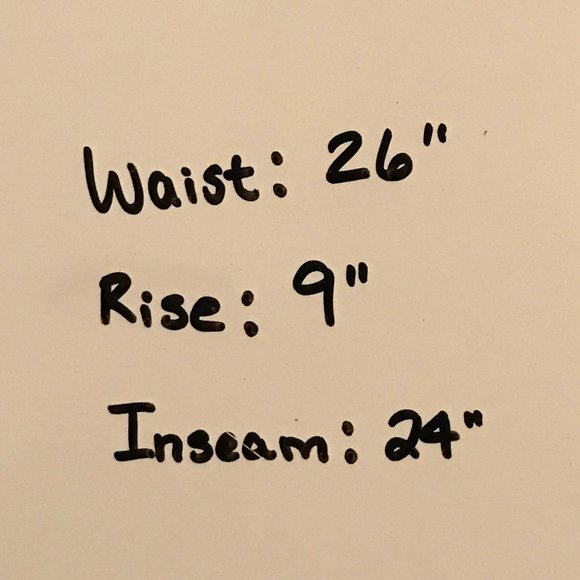 Waist: 26"
Rise: 9"
Inseam: 24"